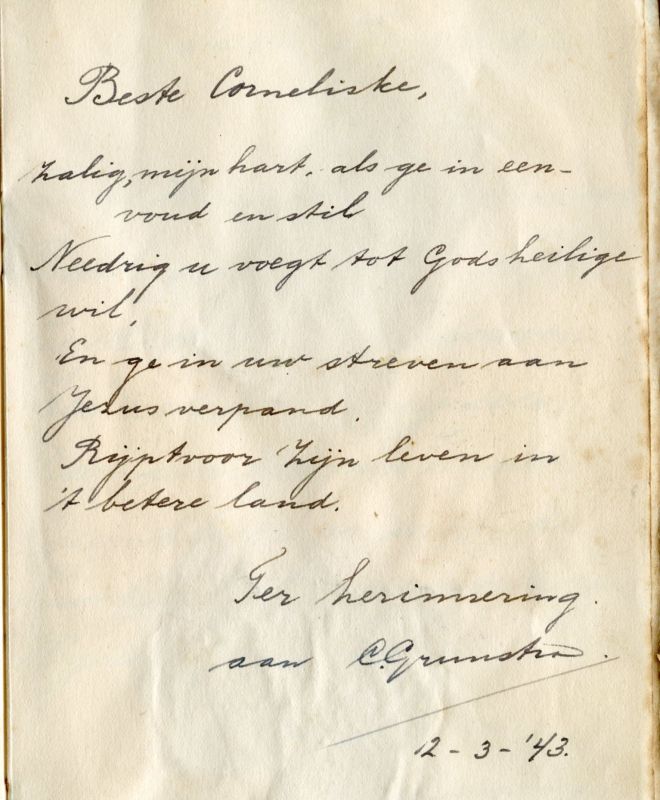 Beste Corneliske,
Zalig, mijn hart, als ge in een-
voud en stil
Needrig u voegt tot Gods heilige
wil,
En ge in uw streven aan
Jezus verpand.
Rijpt voor Zijn leven in
't betere land.
Ter herinnering.
aan C. Grunstra.
12-3-'43.